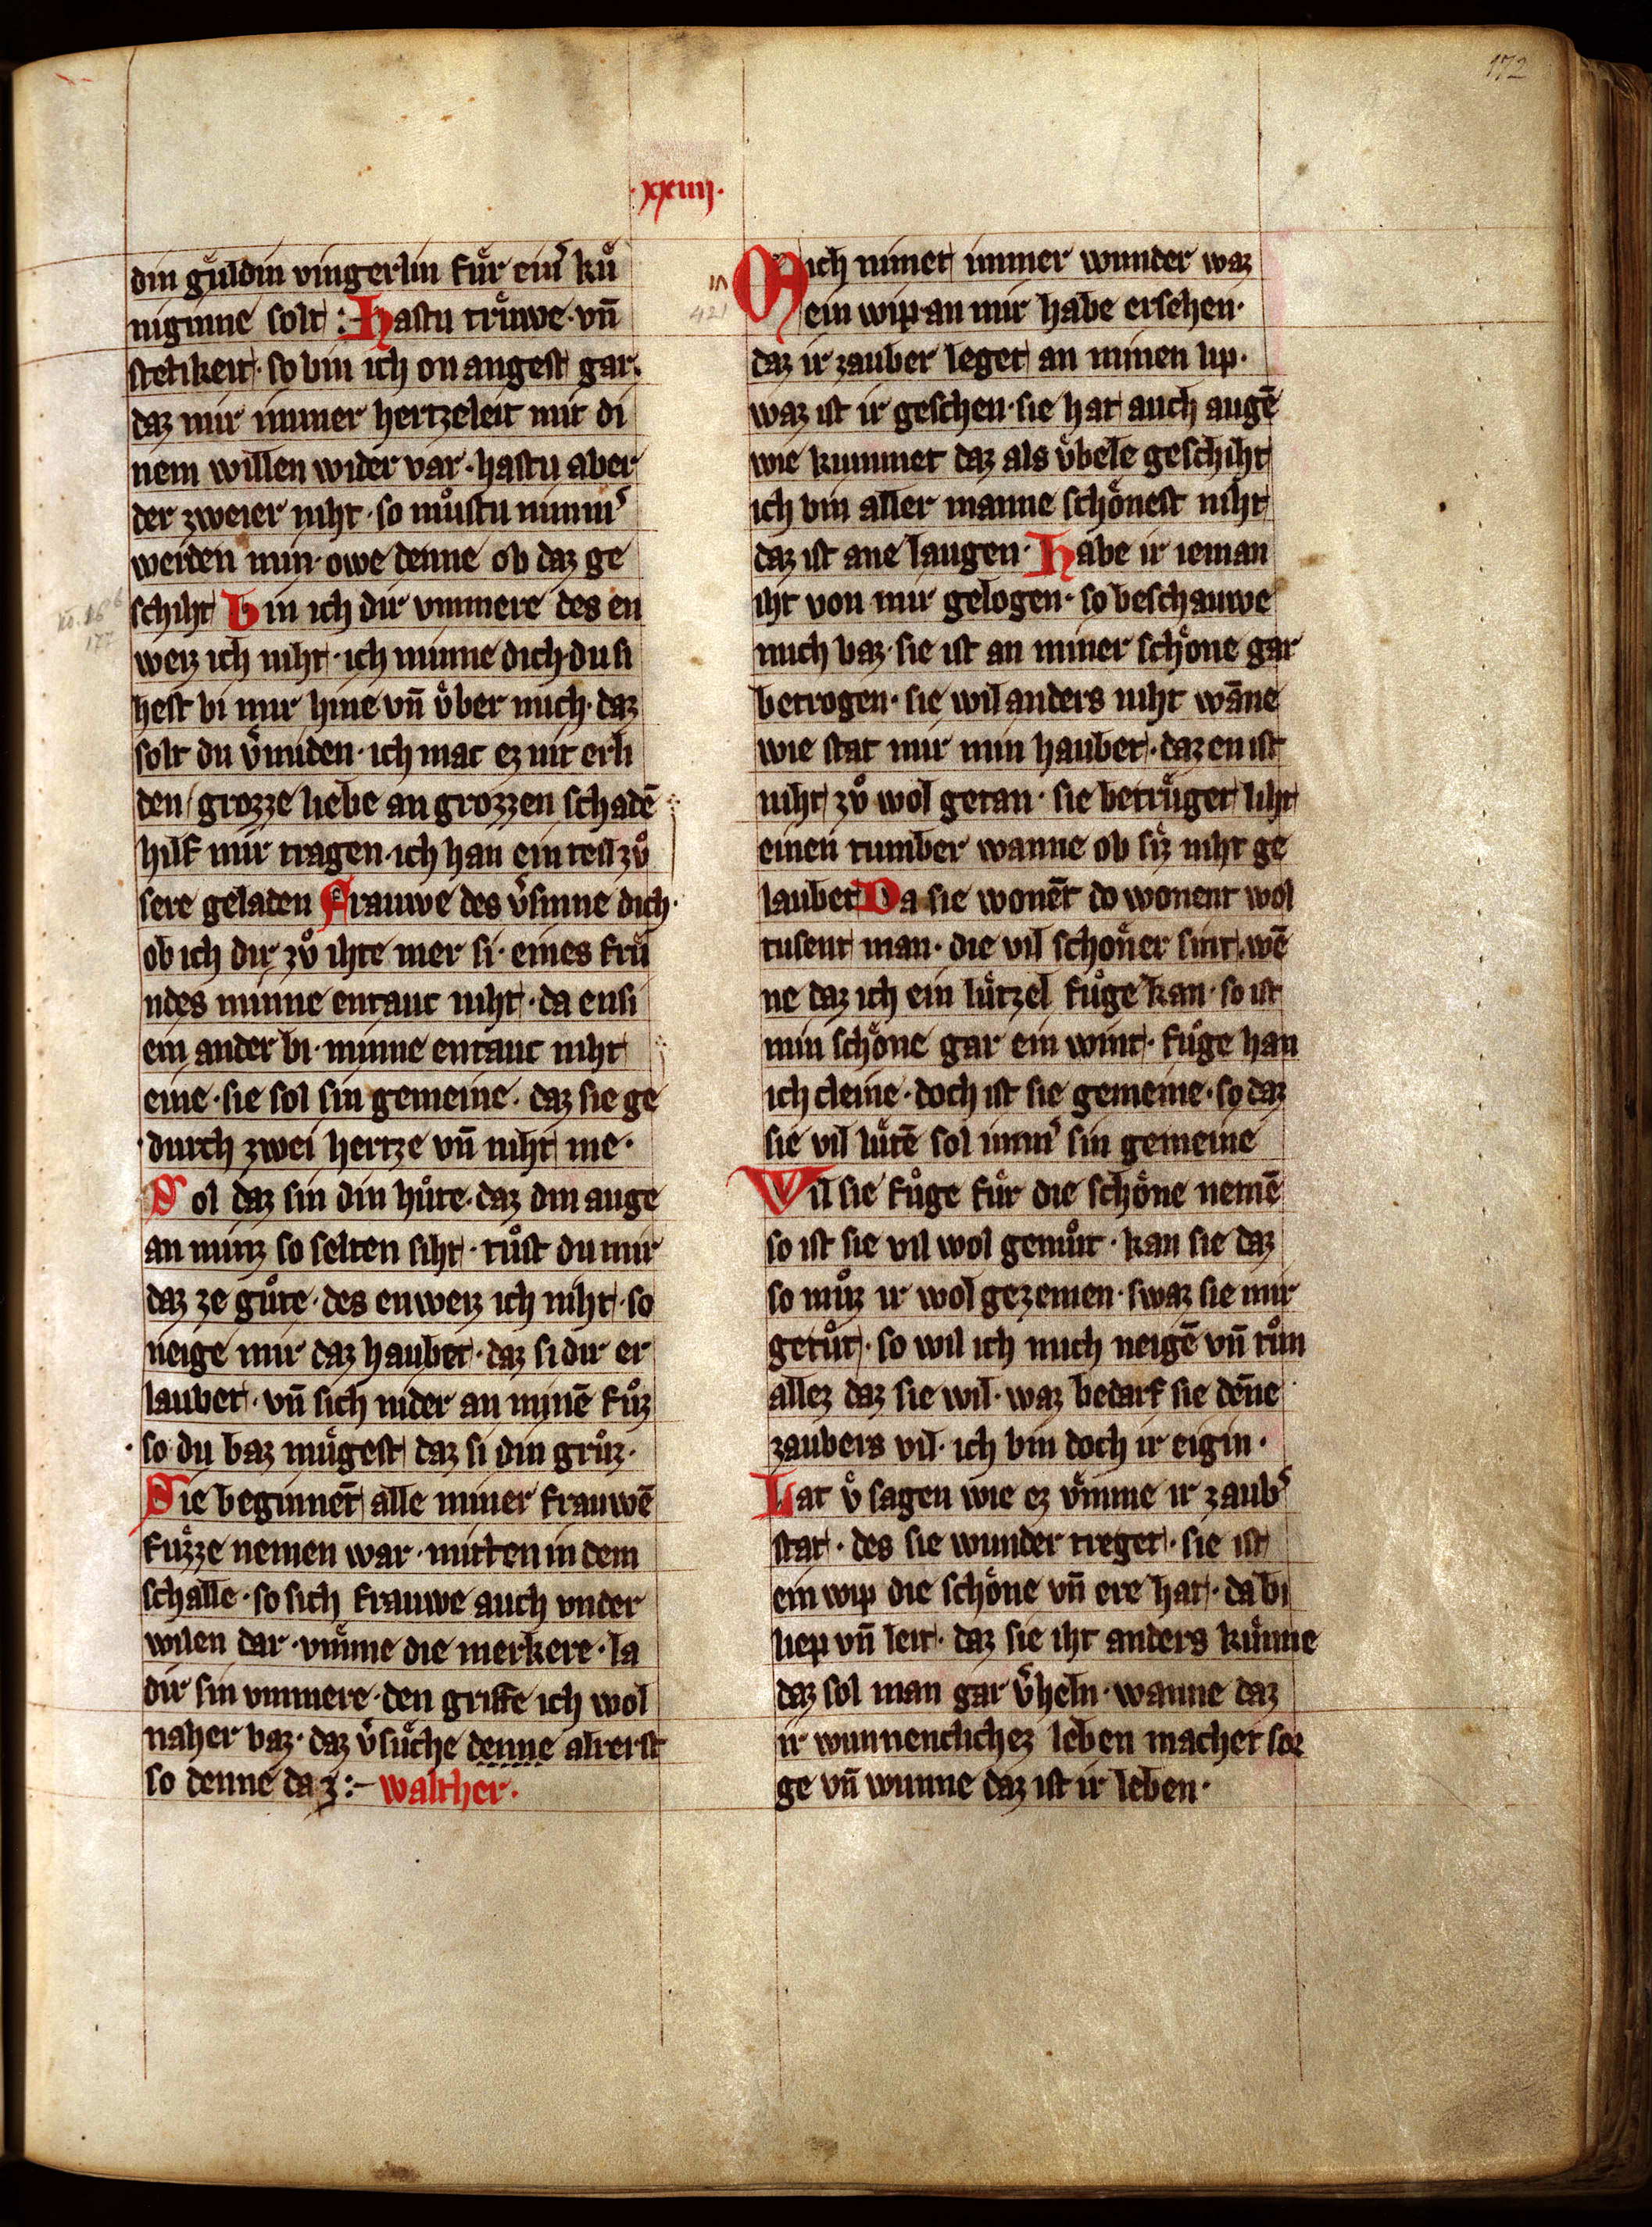 172
·xxiiij·
din gu̍ldin vingerlin fu̍r ein̾ ku̍
niginne solt :- Hastu tru̍we· vn̄
stetikeit· so bin ich on angest gar·
daz mir immer hertzeleit mit di
nem willen wider var· hastu aber
der zweier niht· so mu̍stu nimm̾
werden min· owe denne ob daz ge
schiht Bin ich dir vnmere des en
weiz ich niht· ich minne dich· du si
hest bi mir hine vn̄ vͤber mich· daz
solt du v̾miden· ich mac ez nit erli
den/ grozze liebe an grozzen schadē
hilf mir tragen· ich han ein teil zuͦ
sere geladen Frauwe des v̾sinne dich·
ob ich dir zuͦ ihte mer si· eines fru̍
ndes minne entauc niht· da ensi
ein ander bi· minne entauc niht
eine· sie sol sin gemeine· daz sie ge
durch zwei hertze vn̄ niht me·
Sol daz sin din huͦte· daz din auge
an minz so selten siht· tuͦst du mir
daz ze guͦte· des enweiz ich niht· so
neige mir daz haubet· daz si dir er
laubet· vn̄ sich nider an minē fuͦz
so du baz mu̍gest daz si din gruͦz·
Sie beginnēt alle miner frauwē
fuͤzze nemen war· mitten in dem
schalle· so sich frauwe auch vnder
wilen dar· vmme die merkere· la
dir sin vnmere· den griffe ich wol
naher baz· daz v̾suͤche denne alrerst
so denne daz :- walther·
421
Mich nimet immer wunder waz
ein wip an mir habe ersehen·
daz ir zauber leget an minen lip·
waz ist ir geschen· sie hat auch augē
wie kummet daz als vͤbele geschiht
ich bin aller manne schoͤnest niht
daz ist ane laugen· Habe ir ieman
iht von mir gelogen· so beschauwe
mich baz· sie ist an miner schoͤne gar
betrogen· sie wil anders niht wāne
wie stat mir min haubet· daz en ist
niht zuͦ wol getan· sie betru̍get liht
einen tumber wanne ob siz niht ge
laubet Da sie wonēt do wonent wol
tusent man· die vil schoͤner sint· wē
ne daz ich ein lu̍tzel fuͤge kan· so ist
min schoͤne gar ein wint· fuͤge han
ich cleine· doch ist sie gemeine· so daz
sie vil lu̍tē sol imm̾ sin gemeine
Wil sie fuͤge fu̍r die schoͤne nemē
so ist sie vil wol gemuͦt· kan sie daz
so muͦz ir wol gezemen· swaz sie mir
getuͦt· so wil ich mich neigē vn̄ tuͦn
allez daz sie wil· waz bedarf sie dēne
zaubers vil· ich bin doch ir eigin·
Lat vͤ sagen wie ez vmme ir zaub̾
stat· des sie wunder treget· sie ist
ein wip die schoͤne vn̄ ere hat· da bi
liep vn̄ leit· daz sie iht anders ku̍nne
daz sol man gar v̾heln· wanne daz
ir wunnenclichez leben machet sor
ge vn̄ wunne daz ist ir leben·